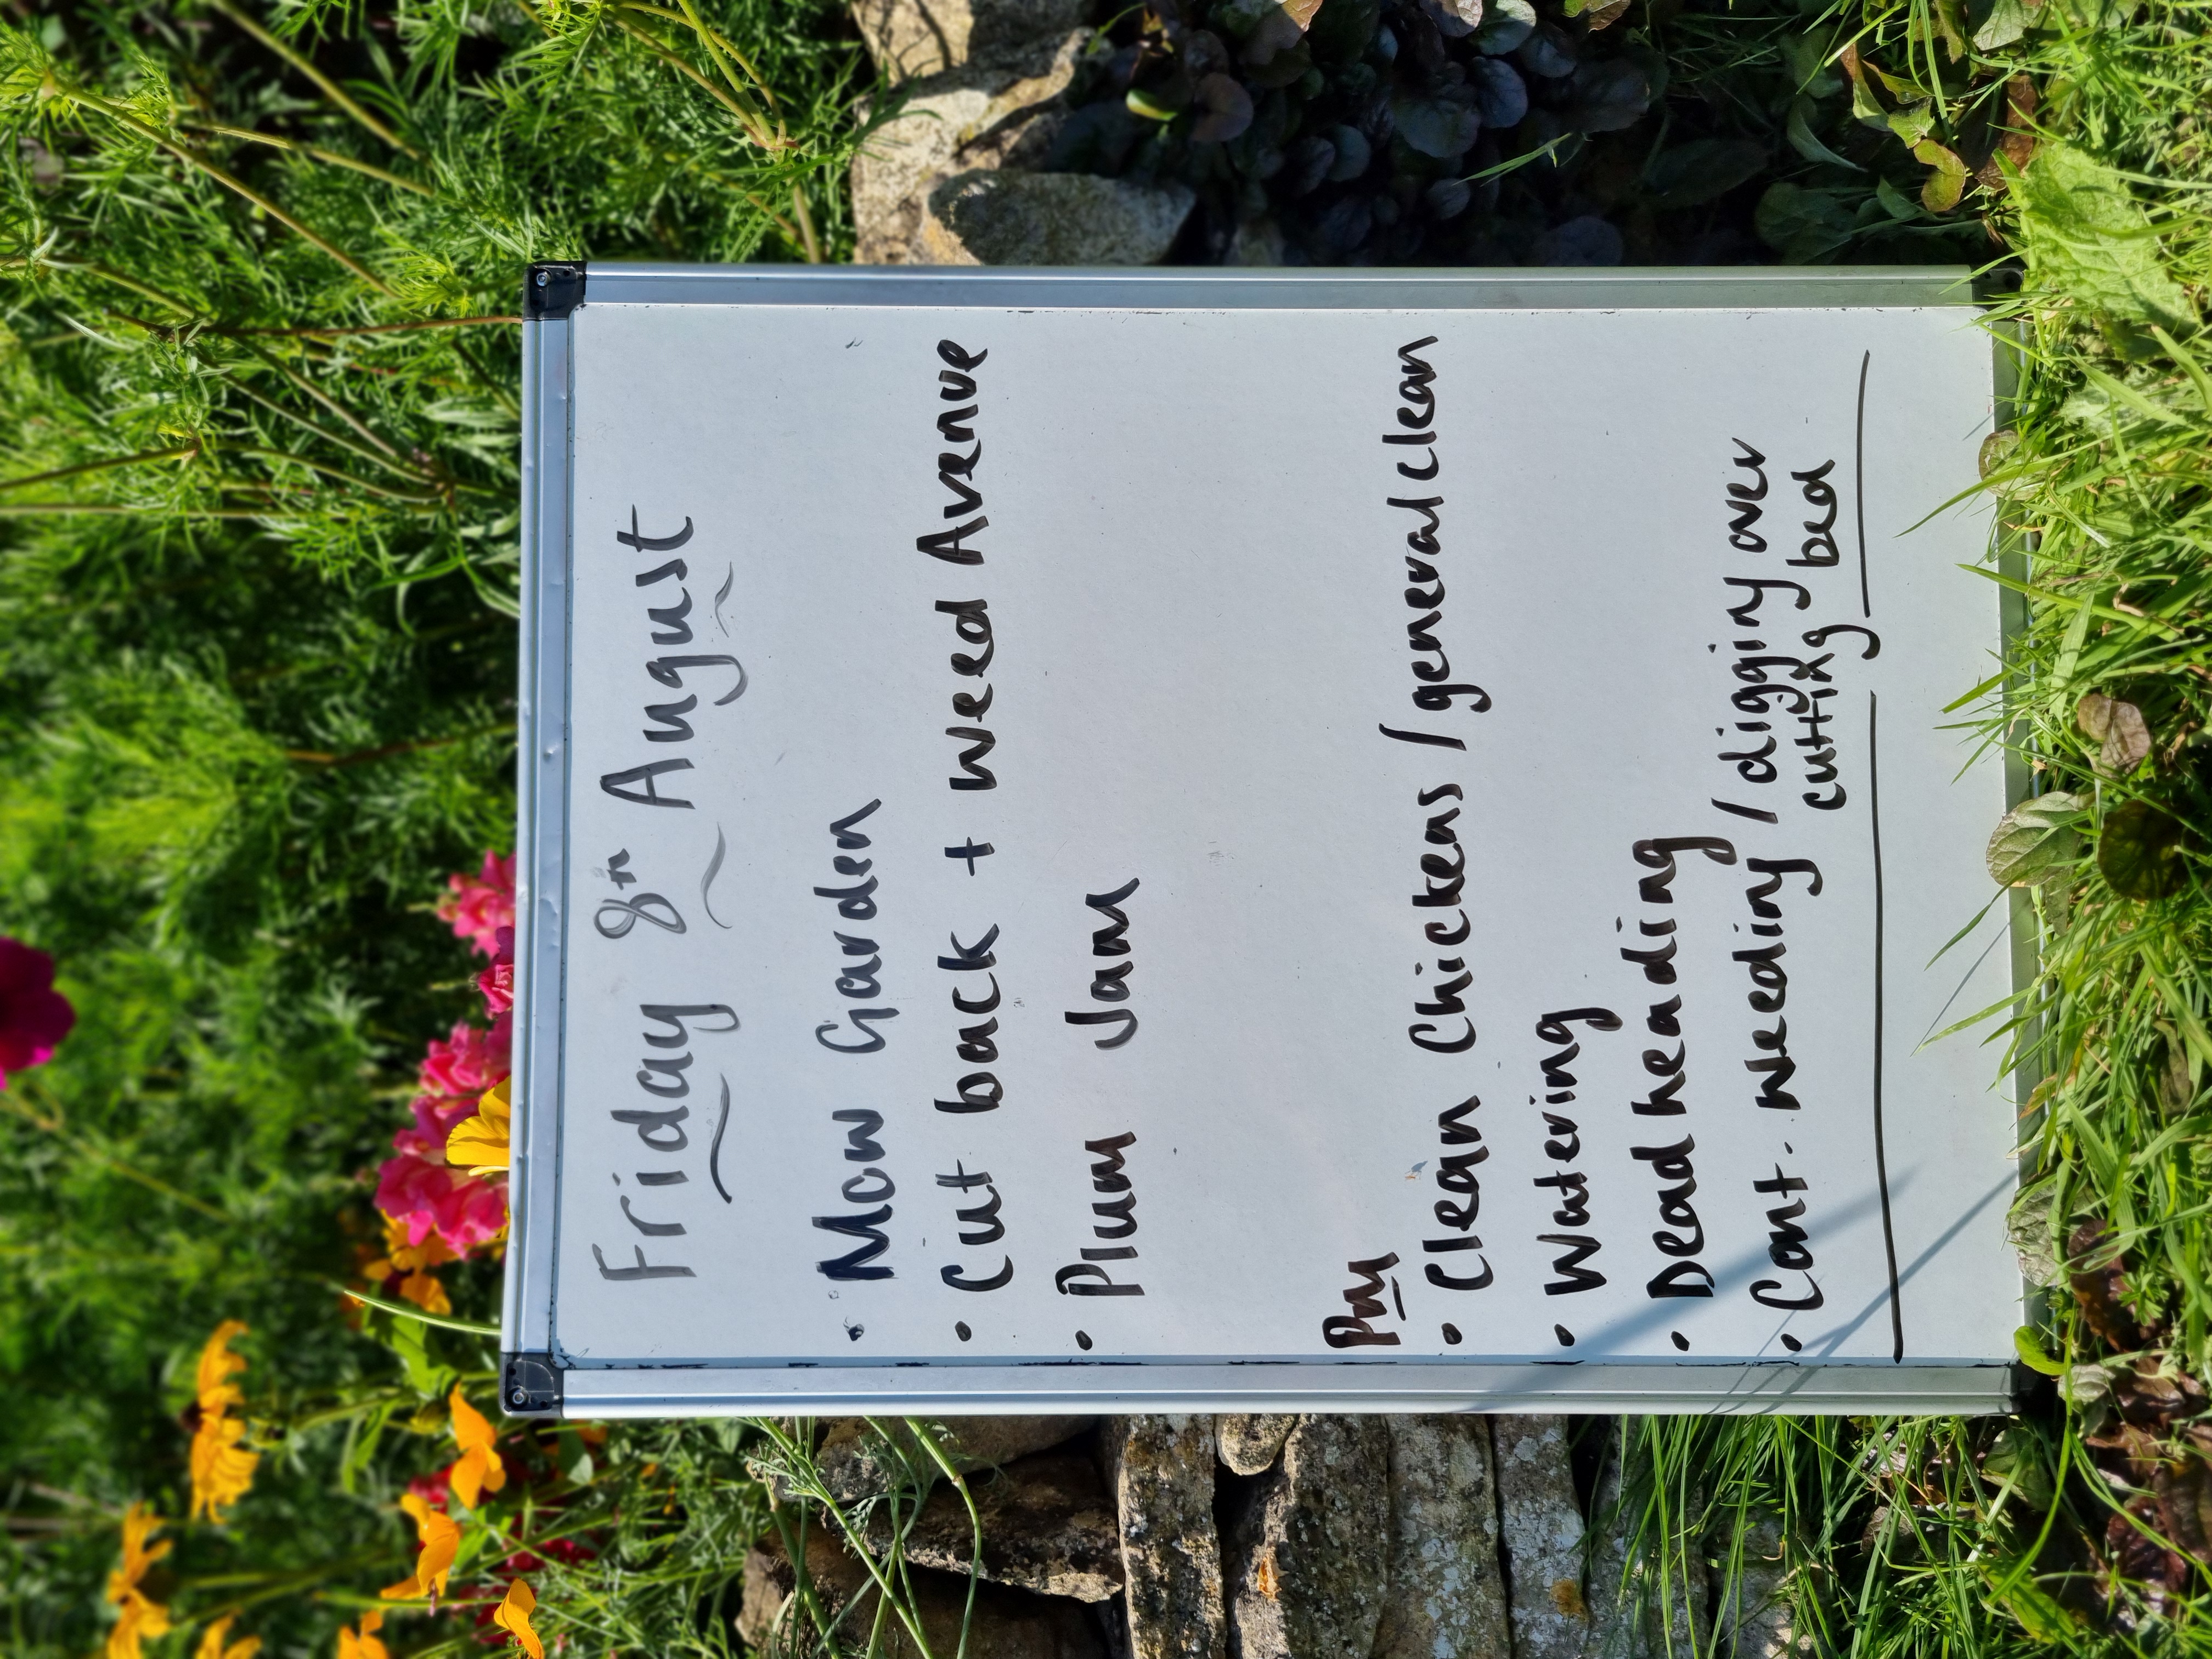 Friday 8th August
• Mow Garden
• Cut back + weed Avenue
• Plum Jam
Pm
• Clean Chickens / general clean
• Watering
• Dead heading
• Cont. weeding / digging over
cutting bed